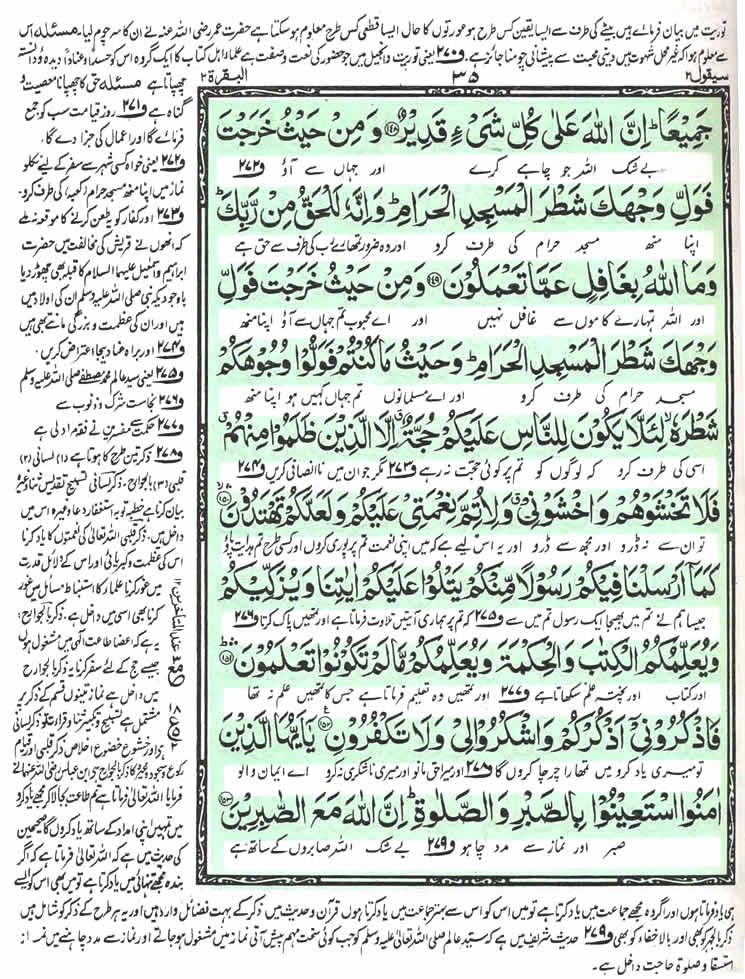 توریت میں بیان فرمائے ہیں بیٹے کی طرف سے ایسا یقین کس طرح ہو عورتوں کا حال ایسا قطعی کس طرح معلوم ہو سکتا ہے حضرت عمر رضی اللہ عنہ نے ان کا سر چوم لیا۔ مسئلہ اس
سے معلوم ہوا کہ غیر محل شہوت میں دینی محبت سے پیشانی چومنا جائز ہے۔ و۲۷۰ یعنی توریت و انجیل میں جو حضور کی نعت و صفت ہے علماء اہل کتاب کا ایک گروہ اس کو حسداً و عناداً دیدہ و دانستہ
سیقول ۲ ۳۵ البقرۃ ۲
جَمِیْعًاؕ اِنَّ اللّٰهَ عَلٰى كُلِّ شَیْءٍ قَدِیْرٌ ۱۴۸ وَ مِنْ حَیْثُ خَرَجْتَ
بے شک اللہ جو چاہے کرے اور جہاں سے آؤ و۲۷۲
فَوَلِّ وَجْهَكَ شَطْرَ الْمَسْجِدِ الْحَرَامِؕ وَ اِنَّهٗ لَلْحَقُّ مِنْ رَّبِّكَؕ
اپنا منھ مسجد حرام کی طرف کرو اور وہ ضرور تمہارے رب کی طرف سے حق ہے
وَ مَا اللّٰهُ بِغَافِلٍ عَمَّا تَعْمَلُوْنَ ۱۴۹ وَ مِنْ حَیْثُ خَرَجْتَ فَوَلِّ
اور اللہ تمہارے کاموں سے غافل نہیں اور اے محبوب تم جہاں سے آؤ اپنا منھ
وَجْهَكَ شَطْرَ الْمَسْجِدِ الْحَرَامِؕ وَ حَیْثُ مَا كُنْتُمْ فَوَلُّوْا وُجُوْهَكُمْ
مسجد حرام کی طرف کرو اور اے مسلمانوں تم جہاں کہیں ہو اپنا منھ
شَطْرَهٗۙ لِئَلَّا یَكُوْنَ لِلنَّاسِ عَلَیْكُمْ حُجَّةٌۗ اِلَّا الَّذِیْنَ ظَلَمُوْا مِنْهُمْۗ
اسی کی طرف کرو کہ لوگوں کو تم پر کوئی حجت نہ رہے و۲۷۳ مگر جو ان میں ناانصافی کریں و۲۷۴
فَلَا تَخْشَوْهُمْ وَ اخْشَوْنِیْۗ وَ لِاُتِمَّ نِعْمَتِیْ عَلَیْكُمْ وَ لَعَلَّكُمْ تَهْتَدُوْنَ ۱۵۰
تو ان سے نہ ڈرو اور مجھ سے ڈرو اور یہ اس لیے ہے کہ میں اپنی نعمت تم پر پوری کروں اور کسی طرح تم ہدایت پاؤ
كَمَاۤ اَرْسَلْنَا فِیْكُمْ رَسُوْلًا مِّنْكُمْ یَتْلُوْا عَلَیْكُمْ اٰیٰتِنَا وَ یُزَكِّیْكُمْ
جیسا ہم نے تم میں بھیجا ایک رسول تم میں سے و۲۷۵ کہ تم پر ہماری آیتیں تلاوت فرماتا ہے اور تمھیں پاک کرتا و۲۷۶
وَ یُعَلِّمُكُمُ الْكِتٰبَ وَ الْحِكْمَةَ وَ یُعَلِّمُكُمْ مَّا لَمْ تَكُوْنُوْا تَعْلَمُوْنَ ۱۵۱
اور کتاب اور پختہ علم سکھاتا ہے و۲۷۷ اور تمھیں وہ تعلیم فرماتا ہے جس کا تمھیں علم نہ تھا
فَاذْكُرُوْنِیْۤ اَذْكُرْكُمْ وَ اشْكُرُوْا لِیْ وَ لَا تَكْفُرُوْنِ ۱۵۲ یٰۤاَیُّهَا الَّذِیْنَ
تو میری یاد کرو میں تمھارا چرچا کروں گا و۲۷۸ اور میرا حق مانو اور میری ناشکری نہ کرو اے ایمان والو
اٰمَنُوا اسْتَعِیْنُوْا بِالصَّبْرِ وَ الصَّلٰوةِؕ اِنَّ اللّٰهَ مَعَ الصّٰبِرِیْنَ ۱۵۳
صبر اور نماز سے مدد چاہو و۲۷۹ بے شک اللہ صابروں کے ساتھ ہے
چھپاتا ہے مسئلہ حق کا چھپانا معصیت و
گناہ ہے و۲۷۱ روز قیامت سب کو جمع
فرمائے گا اور اعمال کی جزا دے گا۔
و۲۷۲ یعنی خواہ کسی شہر سے سفر کے لیے نکلو
نماز میں اپنا منھ مسجد حرام (کعبہ) کی طرف کرو۔
و۲۷۳ اور کفار کو یہ طعن کرنے کا موقعہ نہ ملے
کہ انھوں نے قریش کی مخالفت میں حضرت
ابراہیم و اسمٰعیل علیہما السلام کا قبلہ بھی چھوڑ دیا
باوجودیکہ نبی صلی اللہ علیہ وسلم ان کی اولاد میں
ہیں اور ان کی عظمت و بزرگی مانتے بھی ہیں
و۲۷۴ اور براہ عناد بیجا اعتراض کریں۔
و۲۷۵ یعنی سید عالم محمد مصطفےٰ صلی اللہ علیہ وسلم
و۲۷۶ نجاست شرک و ذنوب سے
و۲۷۷ حکمت سے مفسرین نے فقہ مراد لی ہے
و۲۷۸ ذکر تین طرح کا ہوتا ہے (۱) لسانی (۲)
قلبی (۳) بالجوارح، ذکر لسانی تسبیح تقدیس ثنا وغیرہ
بیان کرنا ہے خطبہ توبہ استغفار دعا وغیرہ اس میں
داخل ہیں، ذکر قلبی اللہ تعالیٰ کی نعمتوں کا یاد کرنا
اس کی عظمت و کبریائی اور اس کے دلائل قدرت
میں غور کرنا علماء کا استنباط مسائل میں غور
کرنا بھی اسی میں داخل ہے، ذکر بالجوارح:
یہ ہے کہ اعضا طاعت الٰہی میں مشغول ہوں
جیسے حج کے لیے سفر کرنا یہ ذکر بالجوارح
میں داخل ہے نماز تینوں قسم کے ذکر پر
مشتمل ہے تسبیح و تکبیر ثنا و قرأت تو ذکر لسانی
ہے اور خشوع خضوع اخلاص ذکر قلبی اور قیام
رکوع و سجود وغیرہ ذکر بالجوارح ہے ابن عباس رضی اللہ عنہما نے
فرمایا اللہ تعالیٰ فرماتا ہے تم طاعت بجا لا کر مجھے یاد کرو
میں تمہیں اپنی امداد کے ساتھ یاد کروں گا صحیحین
کی حدیث میں ہے کہ اللہ تعالیٰ فرماتا ہے کہ اگر
بندہ مجھے تنہائی میں یاد کرتا ہے تو میں بھی اس کو ایسے
ہی یاد فرماتا ہوں اور اگر وہ مجھے جماعت میں یاد کرتا ہے تو میں اس کو اس سے بہتر جماعت میں یاد کرتا ہوں قرآن و حدیث میں ذکر کے بہت فضائل وارد ہیں اور یہ ہر طرح کے ذکر کو شامل ہیں
ذکر بالجہر کو بھی اور بالاخفاء کو بھی و۲۷۹ حدیث شریف میں ہے کہ سید عالم صلی اللہ تعالیٰ علیہ وسلم کو جب کوئی سخت مہم پیش آتی نماز میں مشغول ہو جاتے اور نماز سے مدد چاہنے میں نماز
استسقا و صلوٰۃ حاجت داخل ہے۔